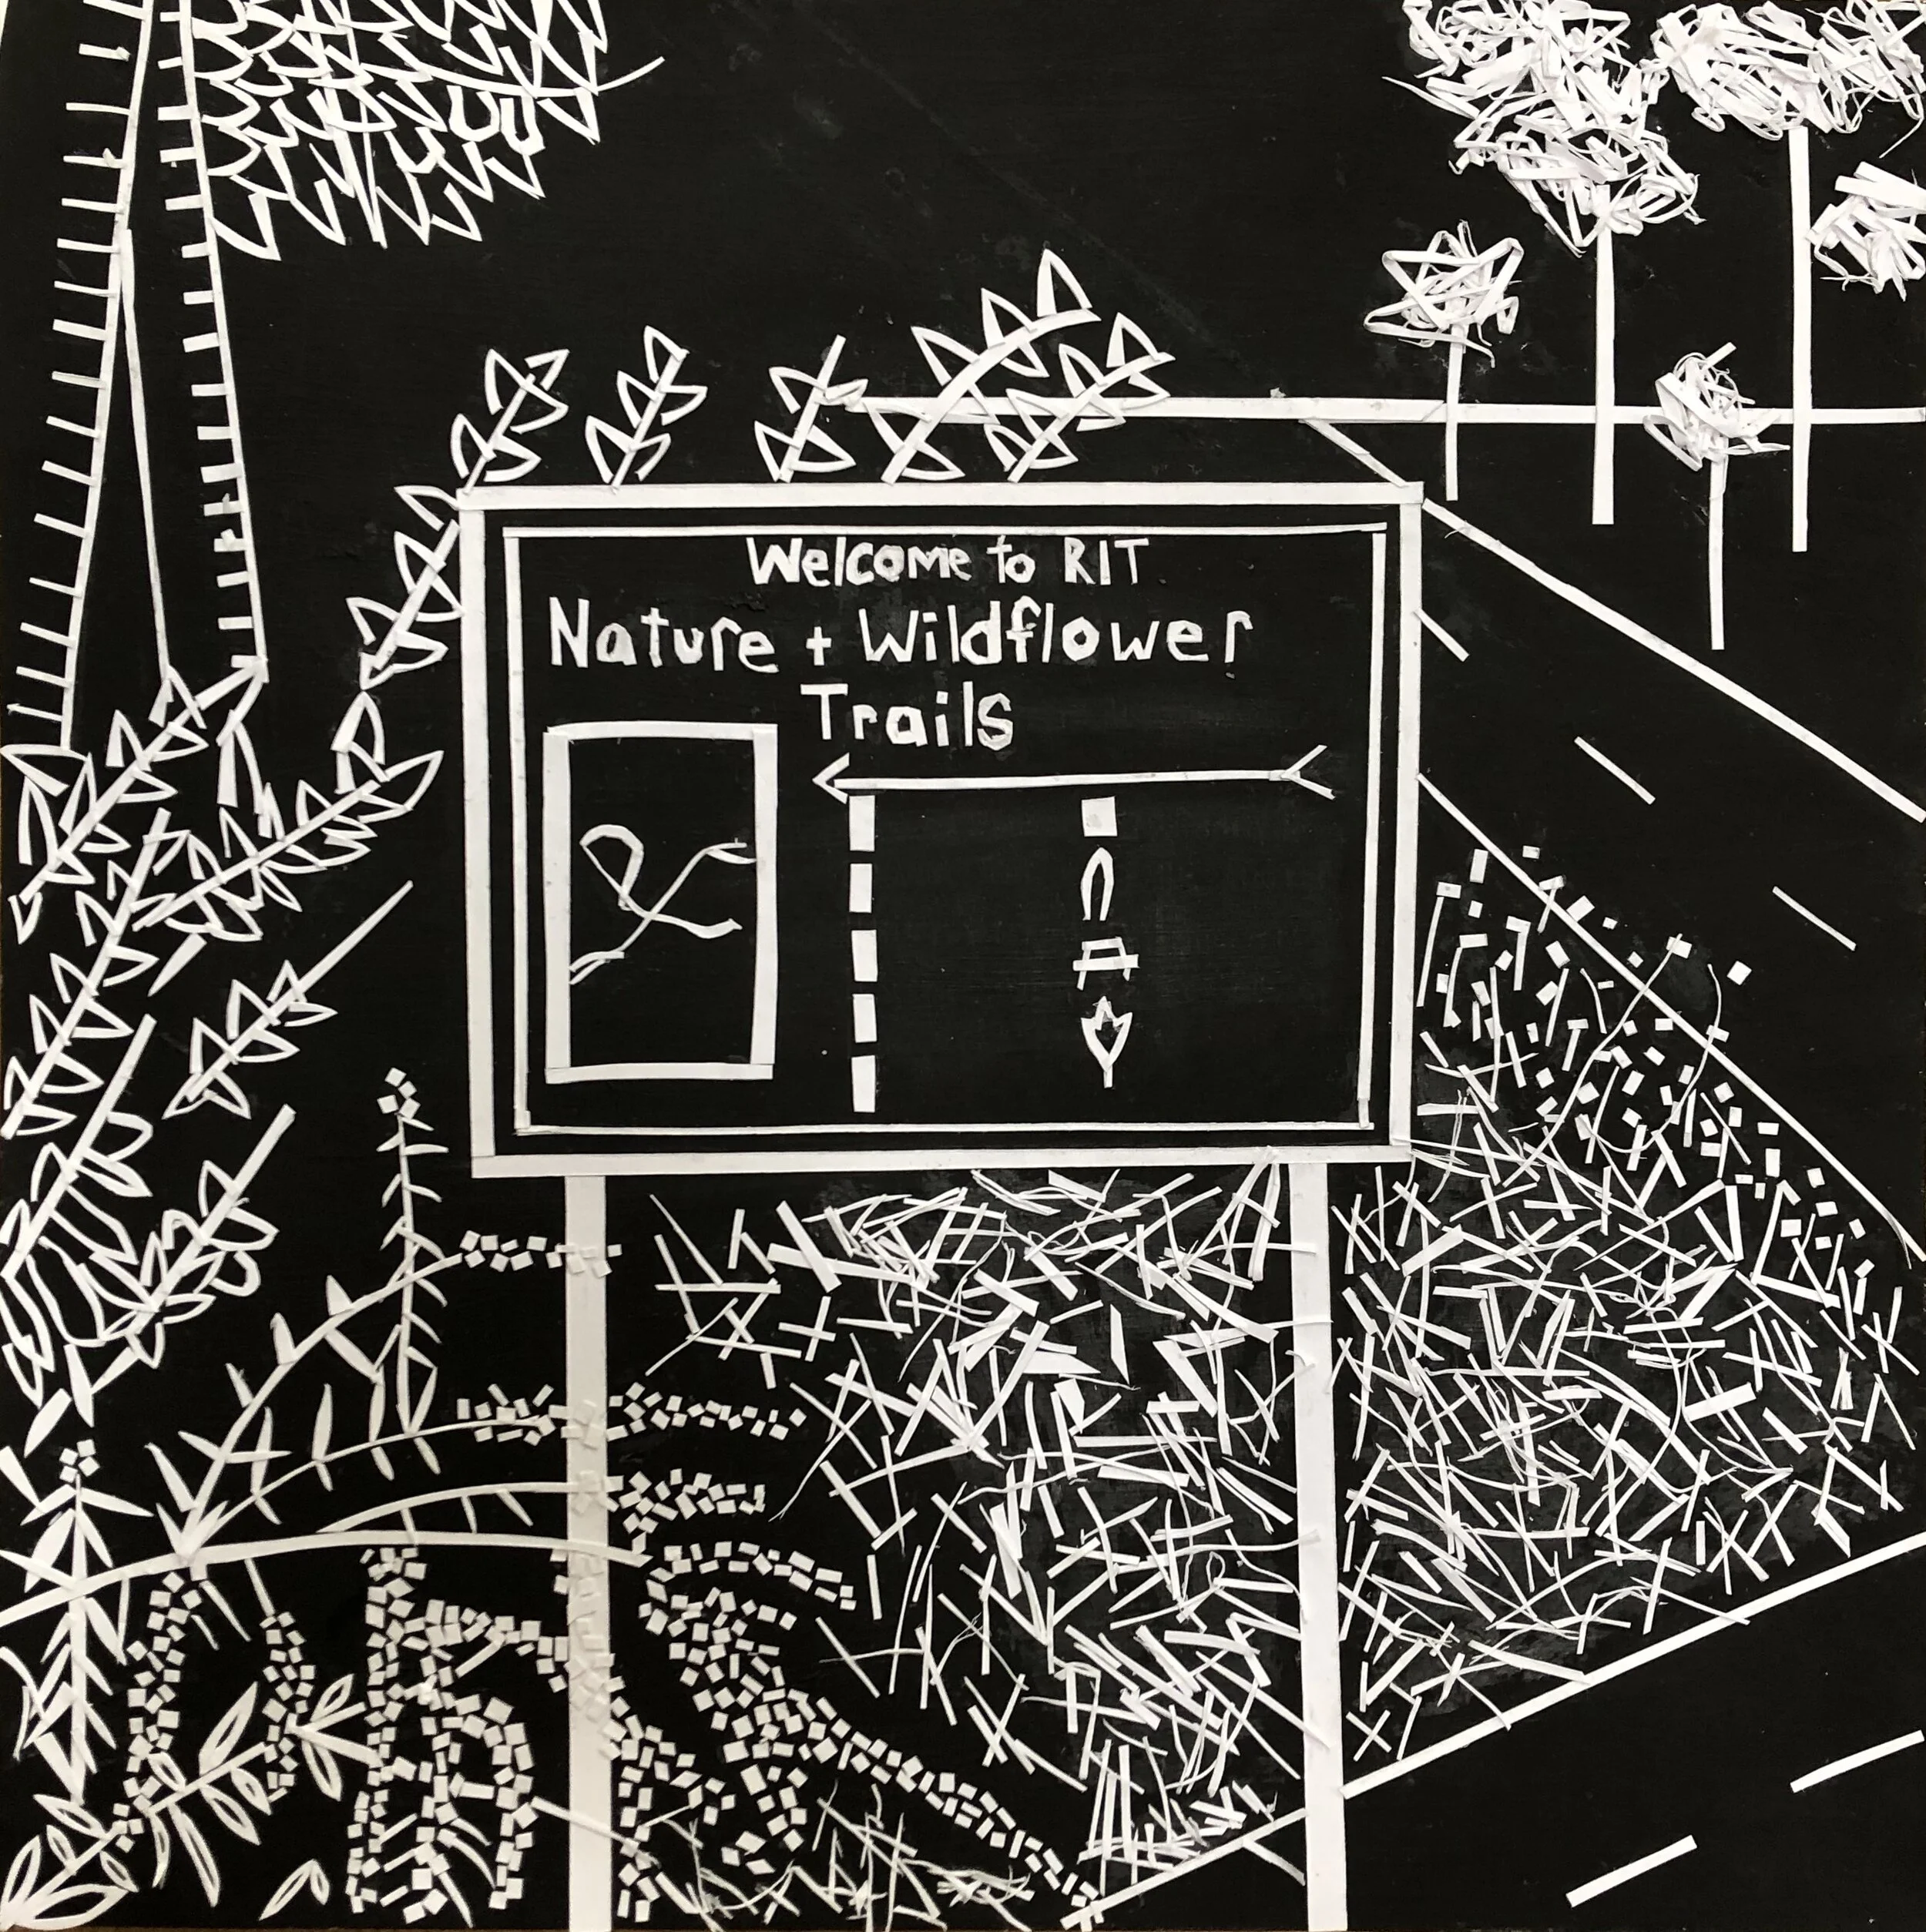 Welcome to RIT
Nature + Wildflower
Trails